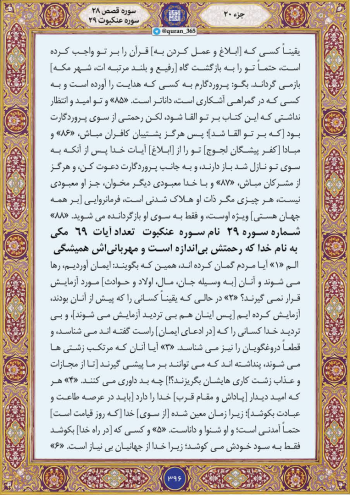 جزء ۲۰
سوره قصص ۲۸
سوره عنکبوت ۲۹
@quran_365
یقیناً کسی که [ابلاغ و عمل کردن به] قرآن را بر تو واجب کرده
است، حتماً تو را به بازگشت گاه [رفیع و بلند مرتبه ات، شهر مکه]
بازمی گرداند. بگو: پروردگارم به کسی که هدایت را آورده است و به
کسی که در گمراهی آشکاری است، داناتر است. «۸۵» و تو امید و انتظار
نداشتی که این کتاب بر تو القا شود، لکن رحمتی از سوی پروردگارت
بود [که بر تو القا شد]؛ پس هرگز پشتیبان کافران مباش، «۸۶» و
مبادا [کفر پیشگان لجوج] تو را از [ابلاغ] آیات خدا پس از آنکه به
سوی تو نازل شد باز دارند، و به جانب پروردگارت دعوت کن، و هرگز
از مشرکان مباش، «۸۷» و با خدا معبودی دیگر مخوان، جز او معبودی
نیست، هر چیزی مگر ذات او هلاک شدنی است، فرمانروایی [بر همه
جهان هستی] ویژه اوست، و فقط به سوی او بازگردانده می شوید. «۸۸»
شماره سوره ۲۹ نام سوره عنکبوت تعداد آیات ۶۹ مکی
به نام خدا که رحمتش بی‌اندازه است و مهربانی‌اش همیشگی
الم «۱» آیا مردم گمان کرده اند، همین که بگویند: ایمان آوردیم، رها
می شوند و آنان [به وسیله جان، مال، اولاد و حوادث] مورد آزمایش
قرار نمی گیرند؟ «۲» در حالی که یقیناً کسانی را که پیش از آنان بودند،
آزمایش کرده ایم [پس اینان هم بی تردید آزمایش می شوند]، و بی
تردید خدا کسانی را که [در ادعای ایمان] راست گفته اند می شناسد، و
قطعاً دروغگویان را نیز می شناسد. «۳» آیا آنان که مرتکب زشتی ها
می شوند، پنداشته اند که می توانند بر ما پیشی گیرند [تا از مجازات
و عذاب زشت کاری هایشان بگریزند؟!] چه بد داوری می کنند. «۴» هر
که امید دیدار [پاداش و مقام قرب] خدا را دارد [باید در عرصه طاعت و
عبادت بکوشد]؛ زیرا زمان معین شده [از سوی] خدا [که روز قیامت است]
حتماً آمدنی است؛ و او شنوا و داناست. «۵» و کسی که [در راه خدا] بکوشد
فقط به سود خودش می کوشد؛ زیرا خدا از جهانیان بی نیاز است. «۶»
۳۹۶